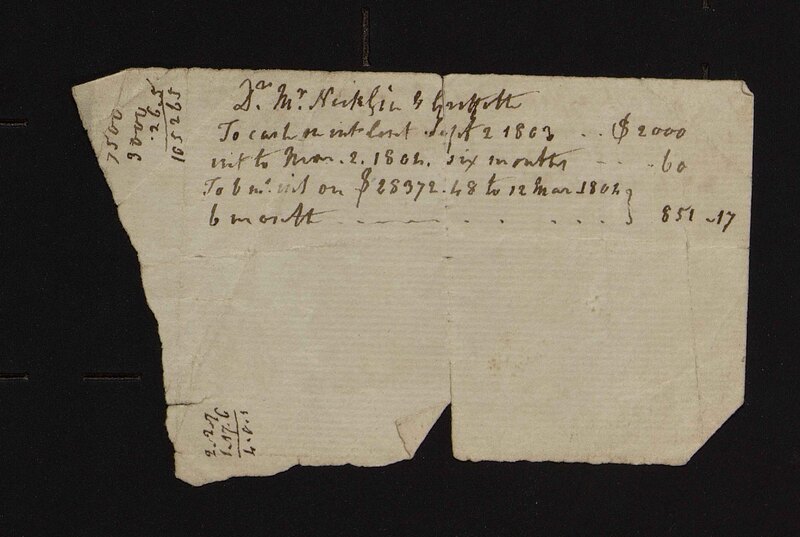 Dr. Mr. Nicklin & Griffith
To cash on int lent Sept 2 1803 .. $ 2000
int to Mar. 2. 1804. six months - - - 60
To 6 m. int on $ 28372.48 to 12 Mar 1804
6 months . . . . . 851 .17
7500
3000
.265
105265
2.2.7
1.17.6
4.0.1